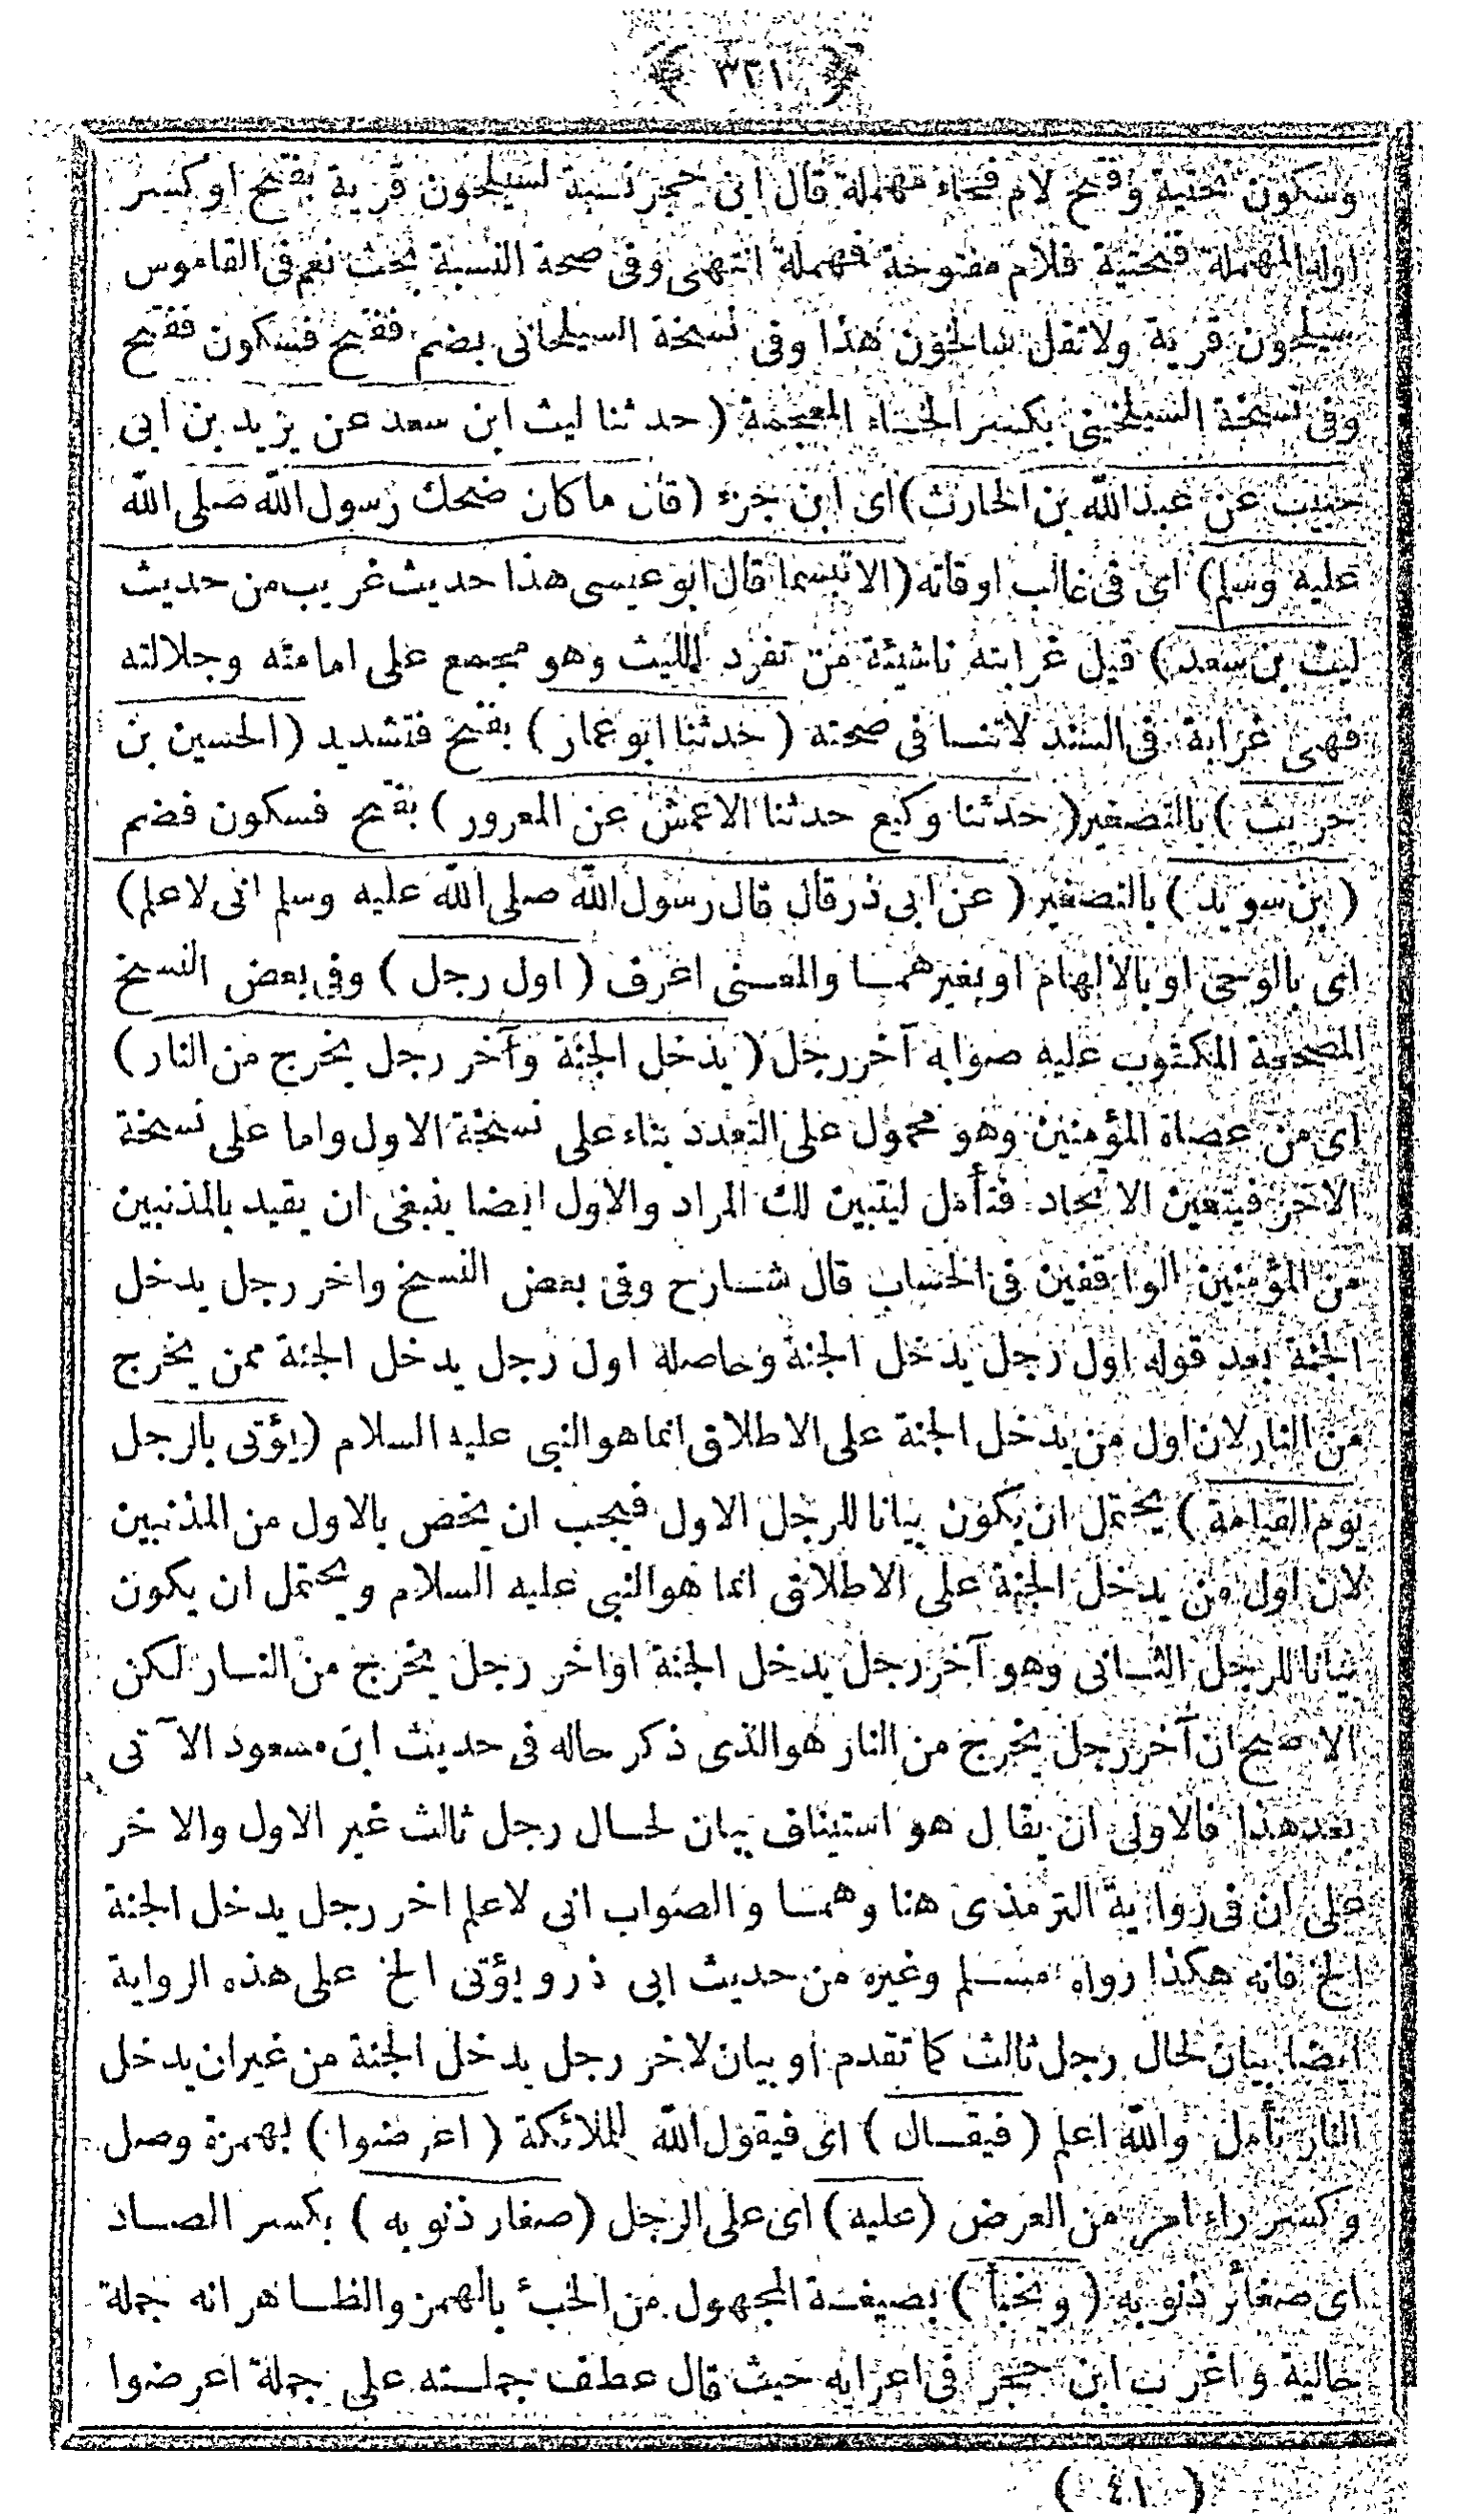 ﴿ ٣٢١ ﴾
وسكون تحتية وفتح لام فحاء مهملة قال ابن حجر نسبة لسيلحون قرية بفتح او كسر
اوله المهملة فتحتية فلام مفتوحة فمهملة انتهى وفى صحة النسبة بحث نعم فى القاموس
سيلحون قرية ولا تقل سالحون هذا وفى نسخة السيلحانى بضم ففتح فسكون ففتح
وفى نسخة السيلخينى بكسر الخاء المعجمة (حدثنا ليث ابن سعد عن يزيد بن ابى
حبيب عن عبد الله بن الحارث) اى ابن جزء (قال ما كان ضحك رسول الله صلى الله
عليه وسلم) اى فى غالب اوقاته (الا تبسما قال ابو عيسى هذا حديث غريب من حديث
ليث بن سعد) قيل غرابته ناشئة من تفرد الليث وهو مجمع على امامته وجلالته
فهى غرابة فى السند لا تنسا فى صحته (حدثنا ابو عمار) بفتح فتشديد (الحسين بن
حريث) بالتصغير (حدثنا وكيع حدثنا الاعمش عن المعرور) بفتح فسكون فضم
(بن سويد) بالتصغير (عن ابى ذر قال قال رسول الله صلى الله عليه وسلم انى لاعلم)
اى بالوحى او بالالهام او بغيرهما والمعنى اعرف (اول رجل) وفى بعض النسخ
المصححة المكتوب عليه صوابه آخر رجل (يدخل الجنة وآخر رجل يخرج من النار)
اى من عصاة المؤمنين وهو محمول على التعدد بناء على نسخة الاول واما على نسخة
الآخر فيتعين الاتحاد فتأمل ليتبين لك المراد والاول ايضا ينبغى ان يقيد بالمذنبين
من المؤمنين الواقفين فى الحساب قال شارح وفى بعض النسخ واخر رجل يدخل
الجنة بعد قوله اول رجل يدخل الجنة وحاصله اول رجل يدخل الجنة ممن يخرج
من النار لان اول من يدخل الجنة على الاطلاق انما هو النبى عليه السلام (يؤتى بالرجل
يوم القيامة) يحتمل ان يكون بيانا للرجل الاول فيجب ان يخص بالاول من المذنبين
لان اول من يدخل الجنة على الاطلاق انما هو النبى عليه السلام ويحتمل ان يكون
بيانا للرجل الثانى وهو آخر رجل يدخل الجنة او اخر رجل يخرج من النار لكن
الاصح ان آخر رجل يخرج من النار هو الذى ذكر حاله فى حديث ابن مسعود الآتى
بعد هذا فالاولى ان يقال هو استيناف بيان لحال رجل ثالث غير الاول والاخر
على ان فى رواية الترمذى هنا وهما والصواب انى لاعلم اخر رجل يدخل الجنة
الخ فانه هكذا رواه مسلم وغيره من حديث ابى ذر ويؤتى الخ على هذه الرواية
ايضا بيان لحال رجل ثالث كما تقدم او بيان لاخر رجل يدخل الجنة من غير ان يدخل
النار تأمل والله اعلم (فيقال) اى فيقول الله للملائكة (اعرضوا) بهمزة وصل
وكسر راء امر من العرض (عليه) اى على الرجل (صغار ذنوبه) بكسر الصاد
اى صغائر ذنوبه (ويخبأ) بصيغة المجهول من الخبء بالهمز والظاهر انه جملة
حالية واغرب ابن حجر فى اعرابه حيث قال عطف جملته على جملة اعرضوا
( ٤١ )